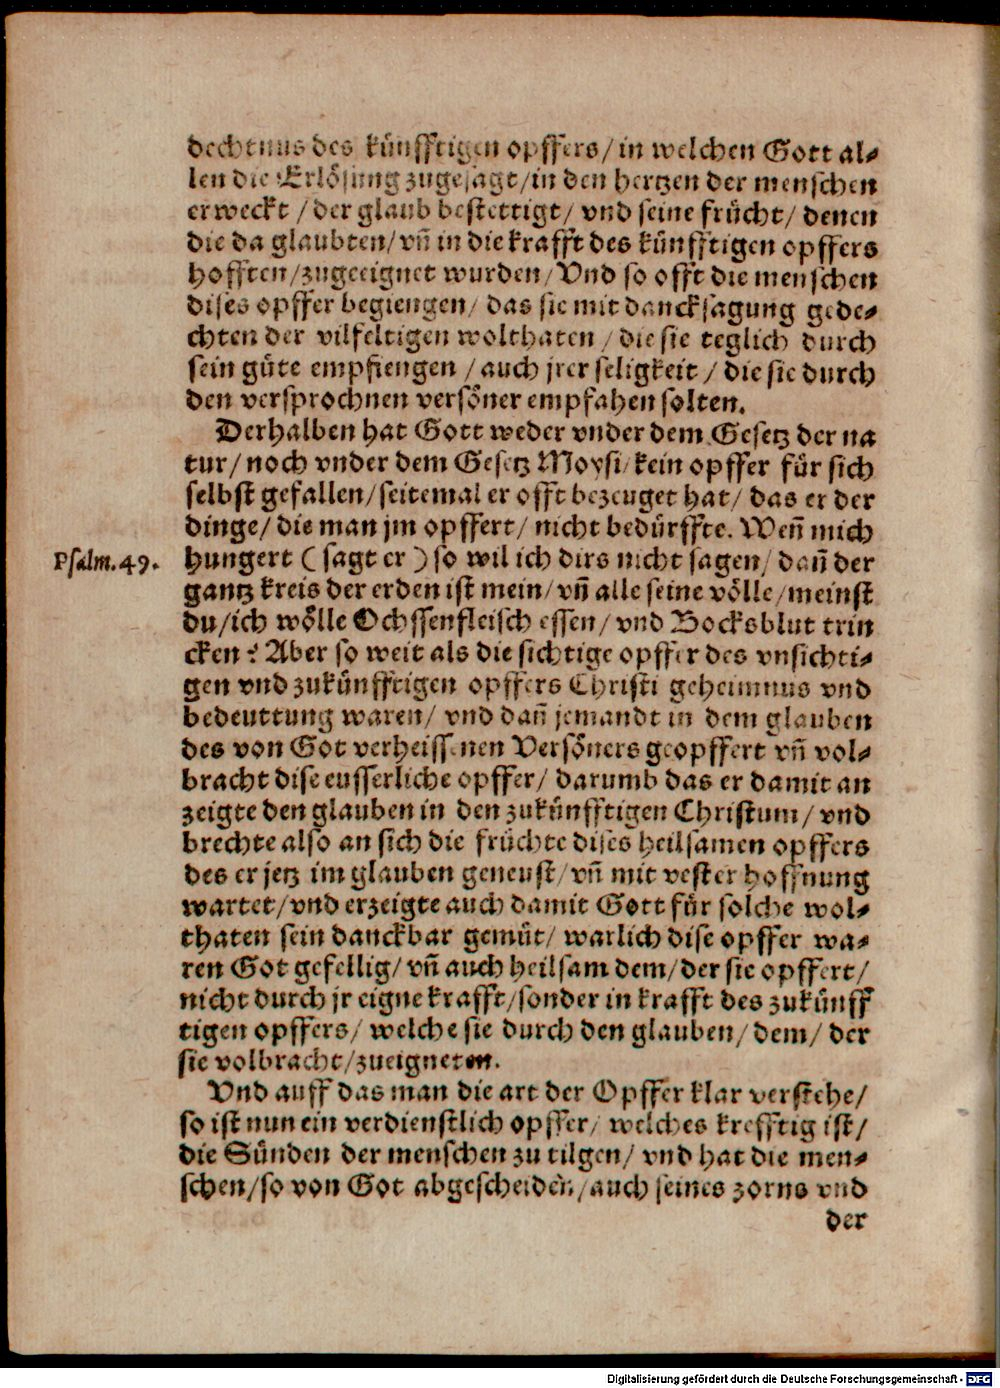 dechtnus des künfftigen opffers/in welchen Gott al-
len die Erlösung zugesagt/in den hertzen der menschen
erweckt /der glaub bestettigt/ vnd seine frücht/ denen
die da glaubten/vñ in die krafft des künfftigen opffers
hofften/zugeeignet wurden/Vnd so offt die menschen
dises opffer begiengen/ das sie mit dancksagung gede-
chten der vilfeltigen wolthaten /die sie teglich durch
sein güte empfiengen /auch jrer seligkeit/ die sie durch
den versprochnen versöner empfahen solten.
Derhalben hat Gott weder vnder dem Gesetz der na
tur/noch vnder dem Gesetz Moysi/kein opffer für sich
selbst gefallen/seitemal er offt bezeuget hat/ das er der
dinge/die man jm opffert/ nicht bedürffte. Weñ mich
Psalm.49. hungert (sagt er) so wil ich dirs nicht sagen/dañ der
gantz kreis der erden ist mein/vñ alle seine völle/meinst
du/ich wölle Ochssenfleisch essen/ vnd Bocksblut trin
cken? Aber so weit als die sichtige opffer des vnsichti-
gen vnd zukünfftigen opffers Christi geheimnus vnd
bedeuttung waren/ vnd dañ jemandt in dem glauben
des von Got verheissenen Versöners geopffert vñ vol-
bracht dise eusserliche opffer/ darumb das er damit an
zeigte den glauben in den zukünfftigen Christum/ vnd
brechte also an sich die früchte dises heilsamen opffers
des er jetz im glauben geneust/vñ mit vester hoffnung
wartet/vnd erzeigte auch damit Gott für solche wol-
thaten sein danckbar gemüt/ warlich dise opffer wa-
ren Got gefellig/vñ auch heilsam dem/der sie opffert/
nicht durch jr eigne krafft/sonder in krafft des zukünff
tigen opffers/ welche sie durch den glauben/dem/ der
sie volbracht/zueigneten.
Vnd auff das man die art der Opffer klar verstehe/
so ist nun ein verdienstlich opffer/ welches krefftig ist/
die Sünden der menschen zu tilgen/ vnd hat die men-
schen/so von Got abgescheiden/auch seines zorns vnd
der
Digitalisierung gefördert durch die Deutsche Forschungsgemeinschaft - DFG